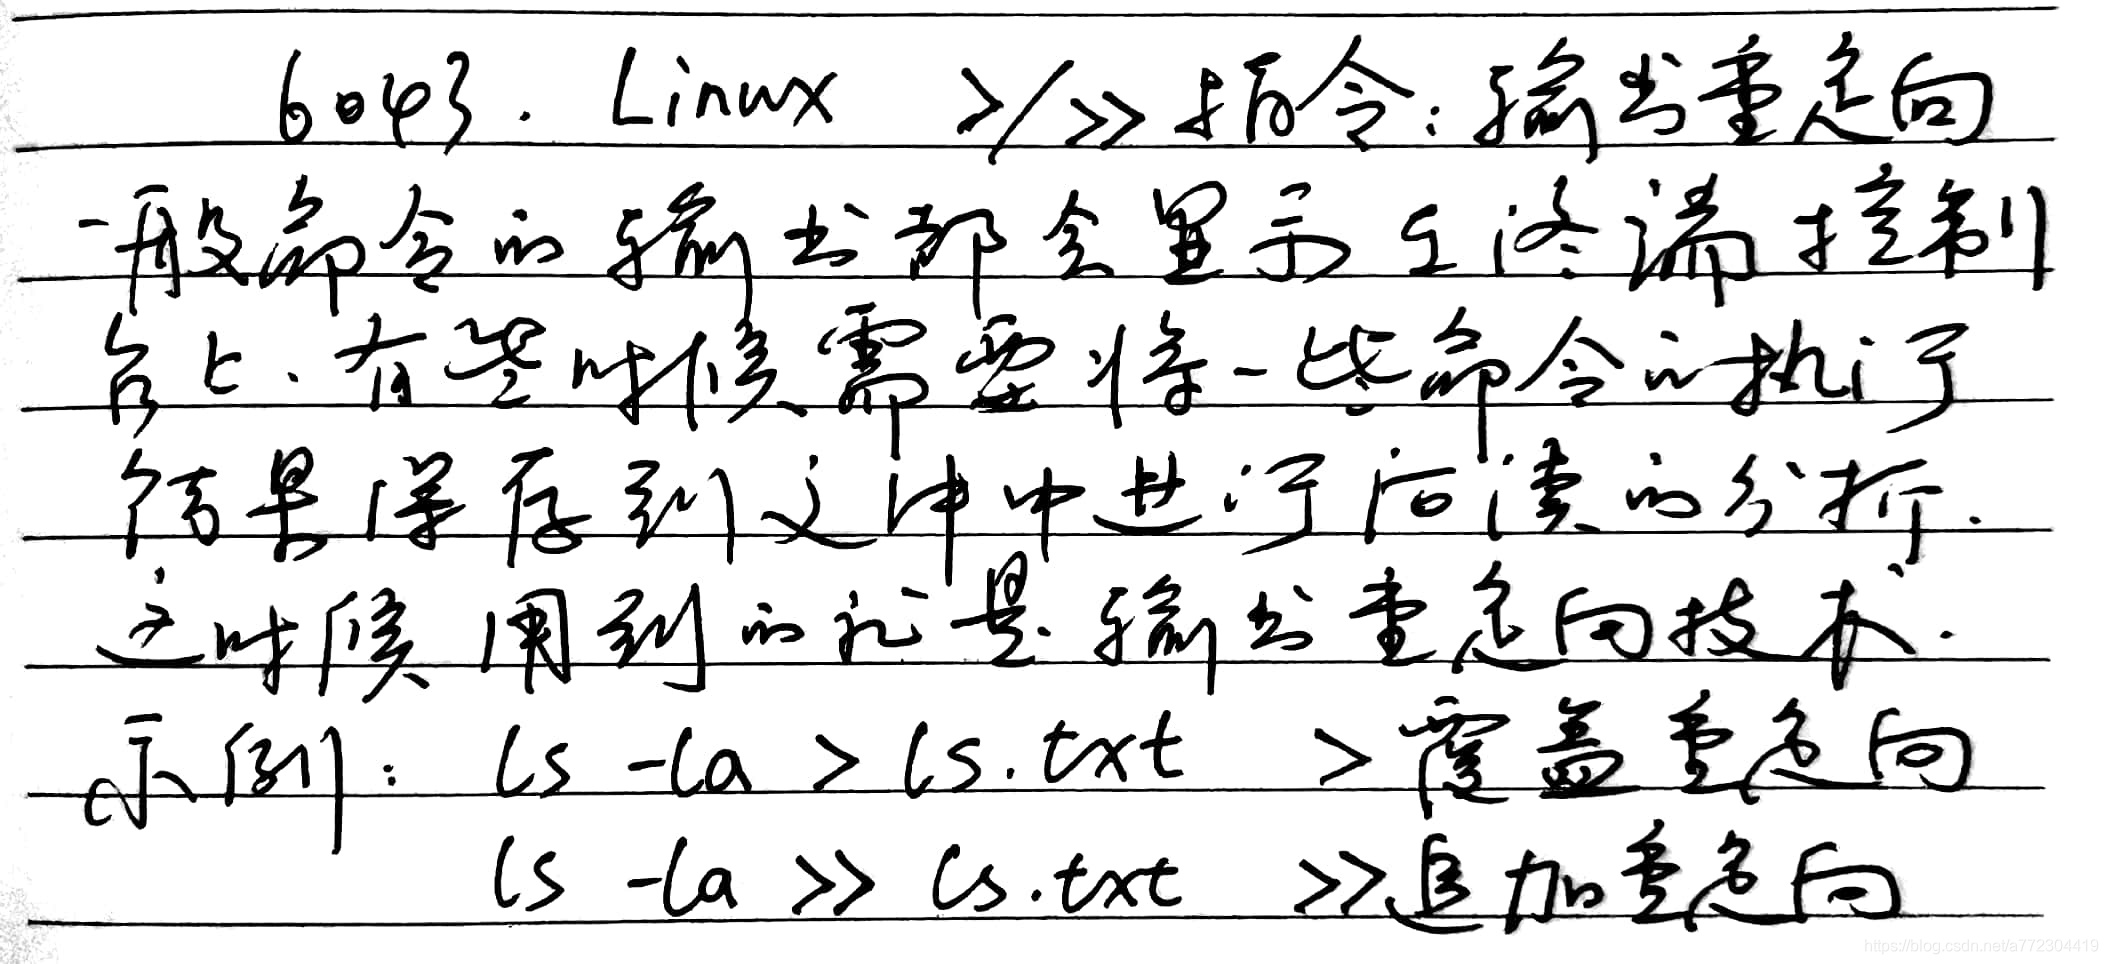 6043. Linux >/>>指令:输出重定向
一般命令的输出都会显示在终端控制
台上.有些时候需要将一些命令的执行
结果保存到文件中进行后续的分析.
这时候用到的就是输出重定向技术.
示例: ls -la > ls.txt >覆盖重定向
ls -la >> ls.txt >>追加重定向
https://blog.csdn.net/a772304419